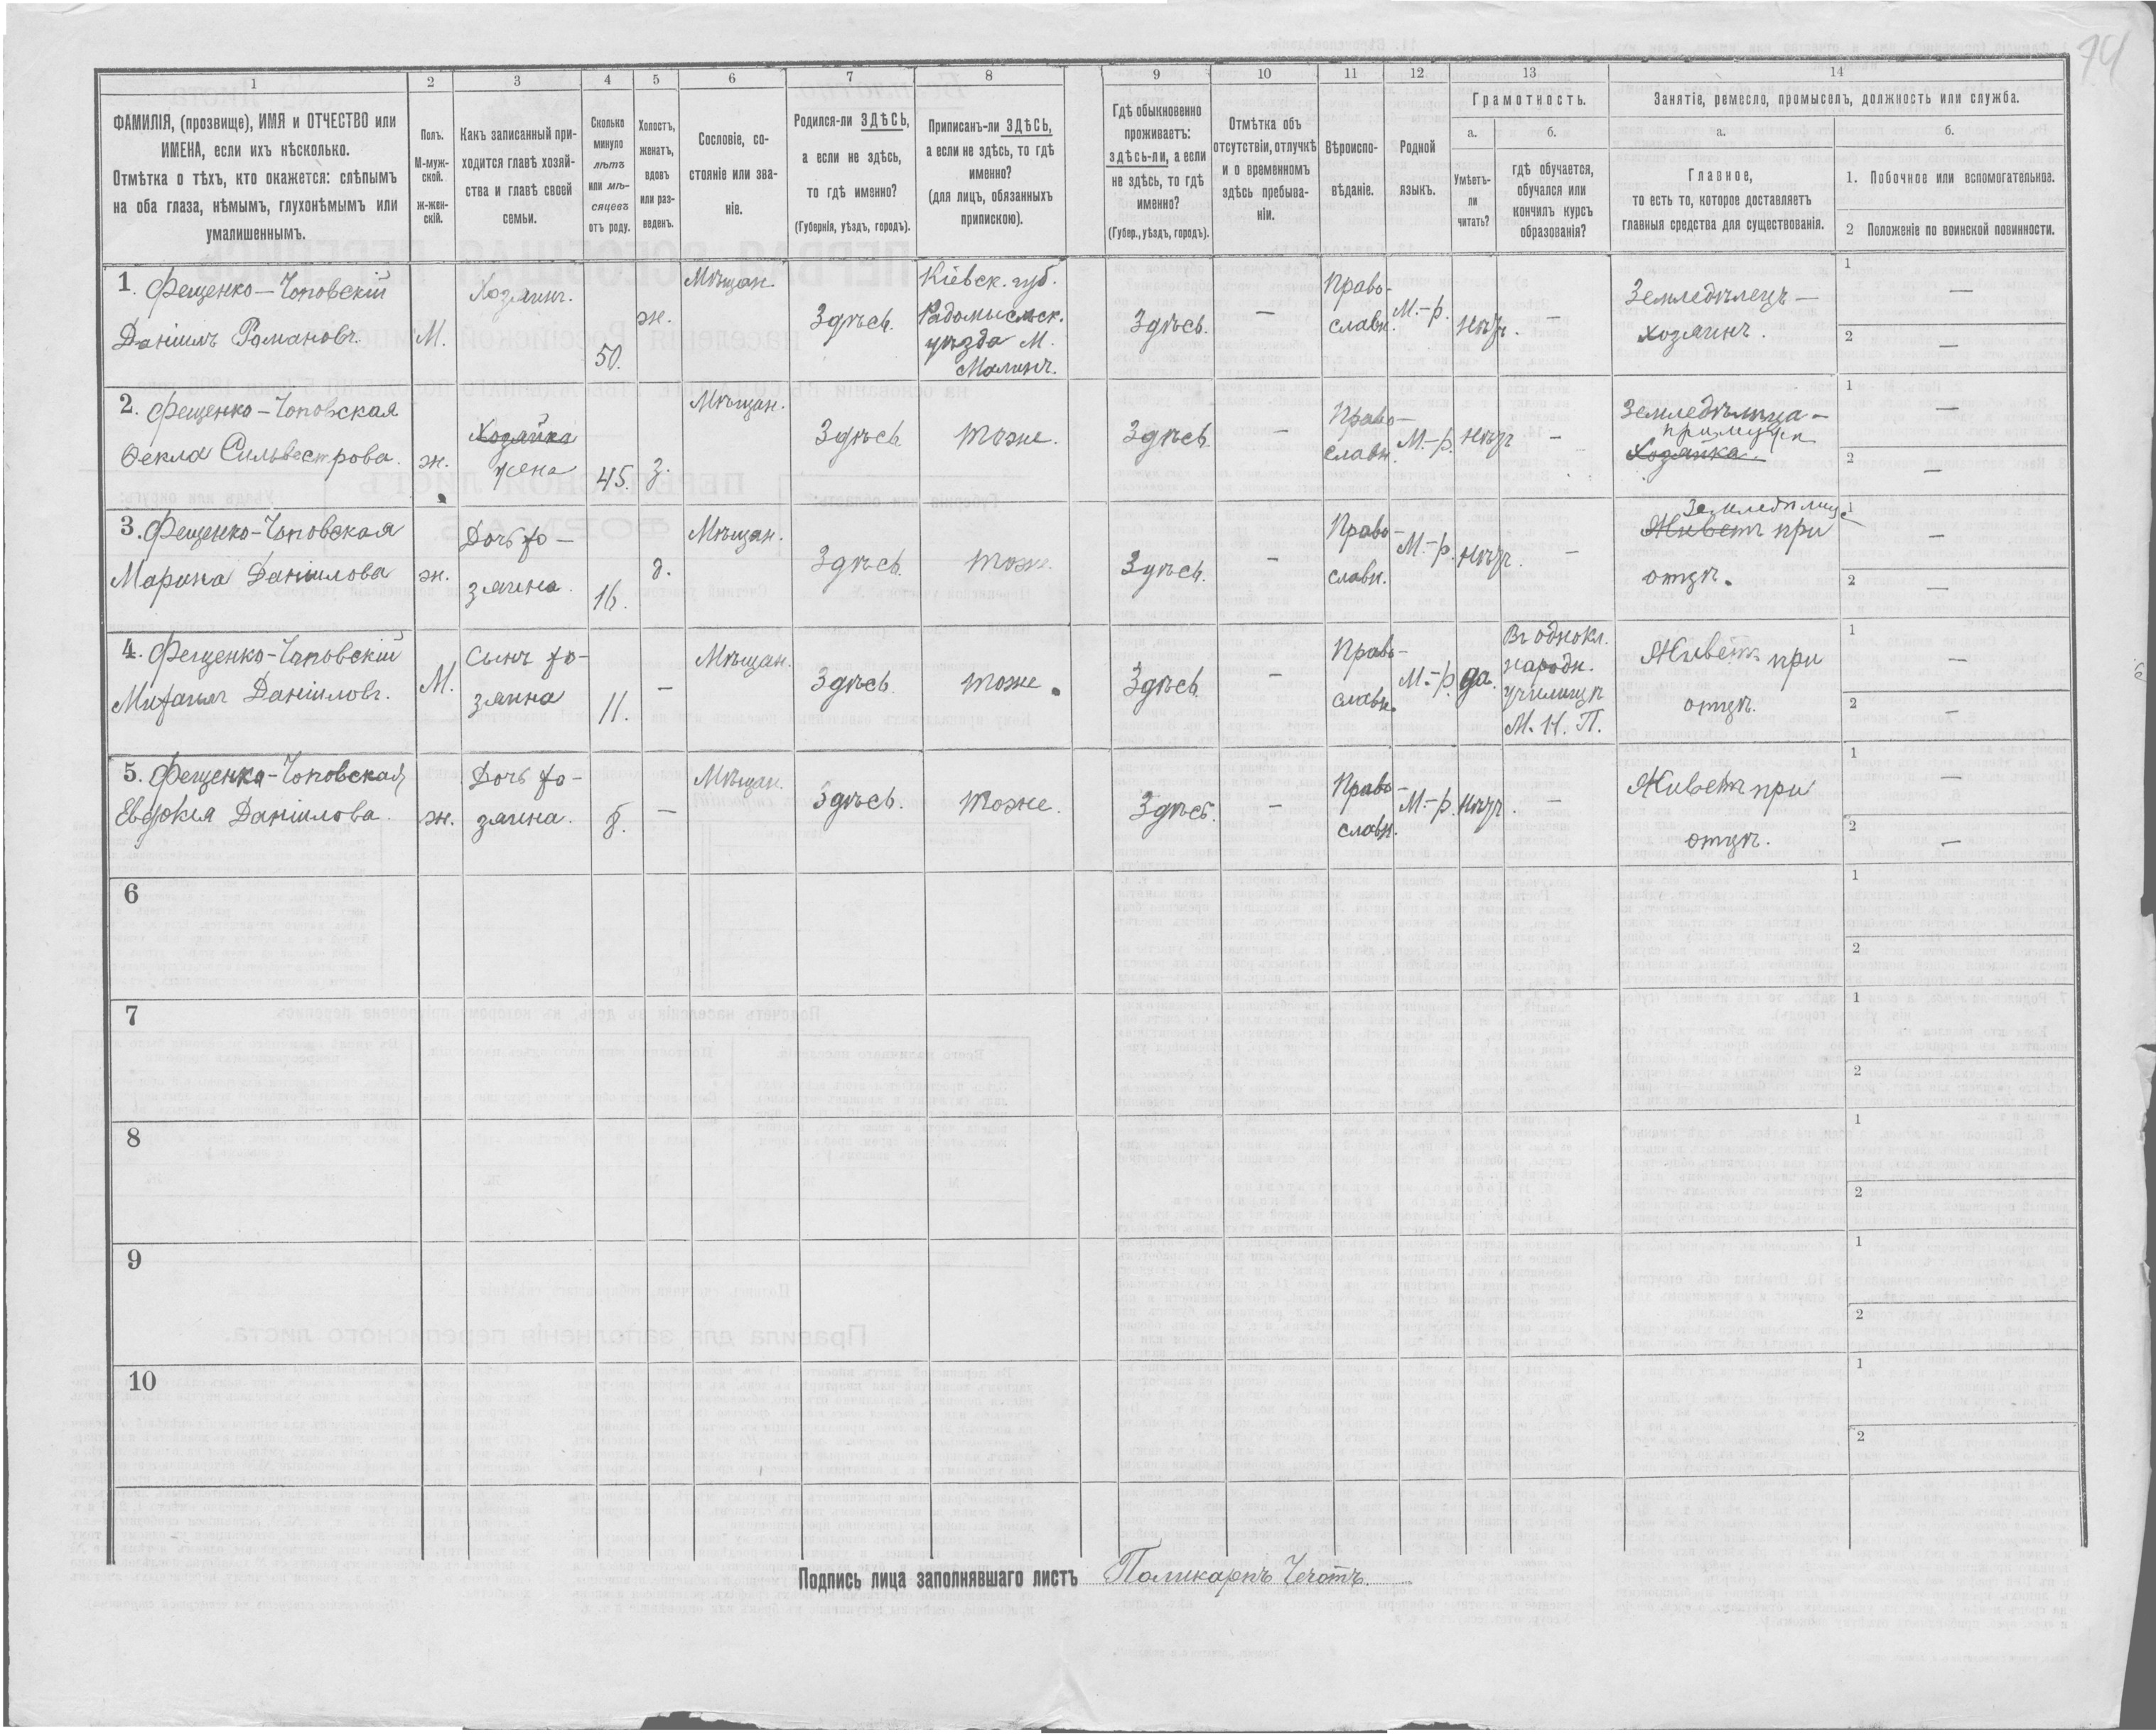 74
1
2
3
4
5
6
7
8
9
10
11
12
13
14
ФАМИЛІЯ, (прозвище), ИМЯ и ОТЧЕСТВО или
ИМЕНА, если ихъ нѣсколько.
Отмѣтка о тѣхъ, кто окажется: слѣпымъ
на оба глаза, нѣмымъ, глухонѣмымъ или
умалишеннымъ.
Полъ.
М-муж-
ской.
ж-жен-
скій.
Какъ записанный при-
ходится главѣ хозяй-
ства и главѣ своей
семьи.
Сколько
минуло
лѣтъ
или мѣ-
сяцевъ
отъ роду.
Холостъ,
женатъ,
вдовъ
или раз-
веденъ.
Сословіе, со-
стояніе или зва-
ніе.
Родился-ли ЗДѢСЬ,
а если не здѣсь,
то гдѣ именно?
(Губернія, уѣздъ, городъ).
Приписанъ-ли ЗДѢСЬ,
а если не здѣсь, то гдѣ
именно?
(для лицъ, обязанныхъ
припискою).
Гдѣ обыкновенно
проживаетъ:
здѣсь-ли, а если
не здѣсь, то гдѣ
именно?
(Губер., уѣздъ, городъ).
Отмѣтка объ
отсутствіи, отлучкѣ
и о временномъ
здѣсь пребыва-
ніи.
Вѣроиспо-
вѣданіе.
Родной
языкъ.
Грамотность.
а.
б.
Умѣетъ-
ли
читать?
гдѣ обучается,
обучался или
кончилъ курсъ
образованія?
Занятіе, ремесло, промыселъ, должность или служба.
а.
б.
Главное,
то есть то, которое доставляетъ
главныя средства для существованія.
1. Побочное или вспомогательное.
2 Положеніе по воинской повинности.
1. Фещенко-Чоповскій
Даніилъ Романовъ.
М.
Хозяинъ.
50.
ж.
Мѣщан.
Здѣсь.
Кіевск. губ.
Радомысльск.
уѣзда М.
Малинъ.
Здѣсь.
—
Право-
славн.
М.-р.
Нѣтъ.
—
Земледѣлецъ —
хозяинъ.
1
—
2
—
2. Фещенко-Чоповская
Ѳекла Сильвестрова.
ж.
Хозяйка
жена
45.
з.
Мѣщан.
Здѣсь
тоже.
Здѣсь.
—
Право-
славн.
М.-р.
Нѣтъ
—
Земледѣлица —
при мужѣ
Хозяйка.
1
—
2
—
3. Фещенко-Чоповская
Марина Даніилова
ж.
Дочь хо-
зяина.
16.
д.
Мѣщан.
Здѣсь.
тоже.
Здѣсь.
—
Право-
славн.
М.-р.
Нѣтъ.
—
Земледѣлица
Живетъ при
отцѣ.
1
—
2
—
4. Фещенко-Чоповскій
Михаилъ Даніиловъ.
М.
Сынъ хо-
зяина
11.
—
Мѣщан.
Здѣсь
тоже.
Здѣсь
—
Право-
славн.
М.-р.
да.
Въ однокл.
народн.
училищѣ
М. Н. П.
Живетъ при
отцѣ.
1
—
2
—
5. Фещенко-Чоповская
Евдокія Даніилова.
ж.
Дочь хо-
зяина.
—
Мѣщан.
Здѣсь.
тоже.
Здѣсь.
—
Право-
славн.
М.-р.
Нѣтъ.
—
Живетъ при
отцѣ.
1
—
2
—
6
1
2
7
1
2
8
1
2
9
1
2
10
1
2
Подпись лица заполнявшаго листъ Поликарпъ